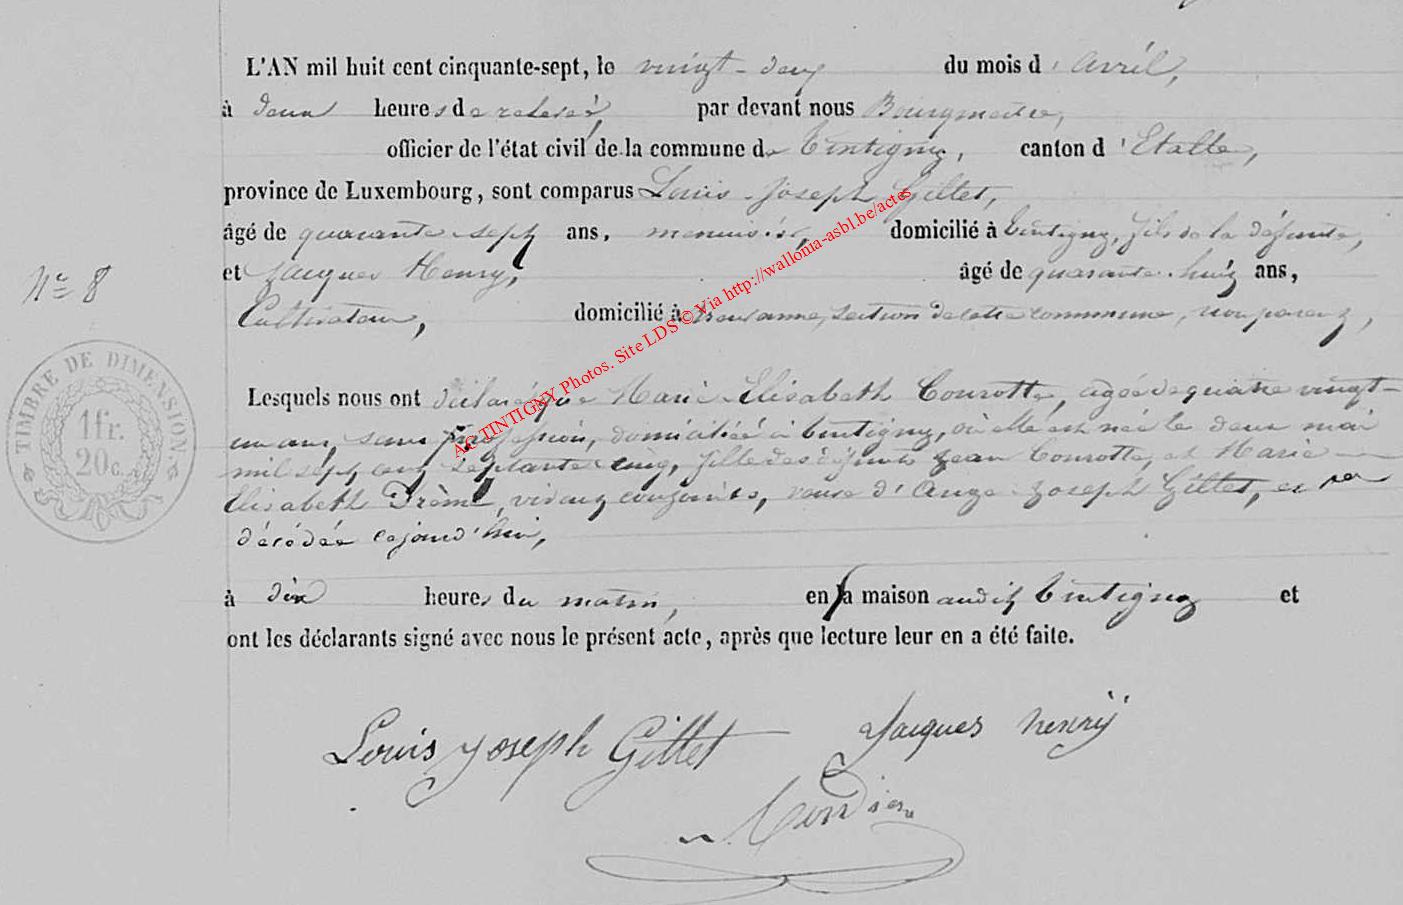 L'AN mil huit cent cinquante-sept, le vingt-deux du mois d'Avril,
à deux heures de relevée, par devant nous Bourgmestre,
officier de l'état civil de la commune de Tintigny, canton d'Etalle,
province de Luxembourg, sont comparus Louis Joseph Gillet,
âgé de quarante sept ans, menuisier, domicilié à Tintigny, fils de la défunte,
et Jacques Henry, âgé de quarante huit ans,
N° 8
Cultivateur, domicilié à section de cette commune, non parent,
Lesquels nous ont déclaré que Marie Elisabeth Courotte, agée de quatre vingt-
un ans, sans profession, domiciliée à Tintigny, où elle est née le deux mai
mil sept cent septante cinq, fille des défunts Jean Courotte, et Marie
Elisabeth vivants conjoints, veuve d'Ange Joseph Gillet, est
décédée cejourd'hui,
à dix heures du matin, en la maison audit Tintigny et
ont les déclarants signé avec nous le présent acte, après que lecture leur en a été faite.
TIMBRE DE DIMENSION
1 fr.
20 c.
AC TINTIGNY Photos. Site LDS © Via http://wallonia-asbl.be/actes
Louis Joseph Gillet Jacques henry